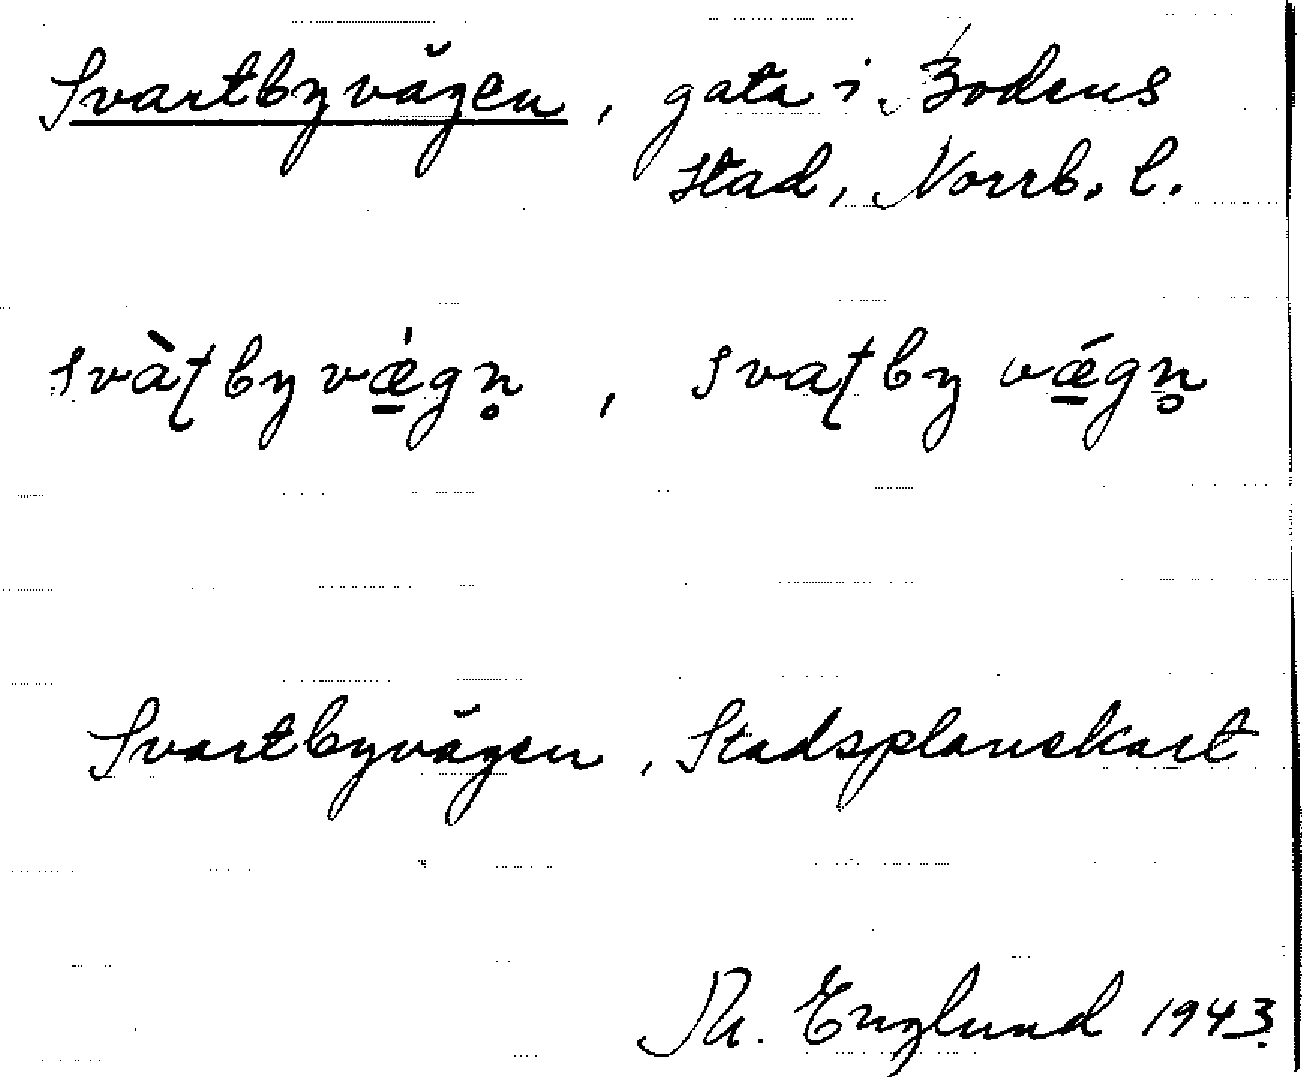 Svartbyvägen, gata i Bodens
stad, Norrb. l.
svàʈbyvǽ̱gn̥, svaʈbyvǽ̱gn̥
Svartbyvägen, Stadsplanekart
Englund 1943